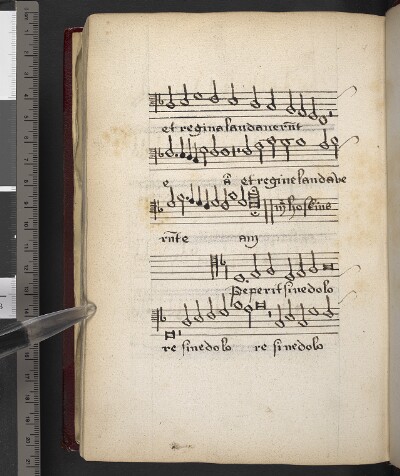 et regina laudauerūt
e ā et regine laudabe
rūte am
Peperit sine dolo
re sine dolo re sine dolo